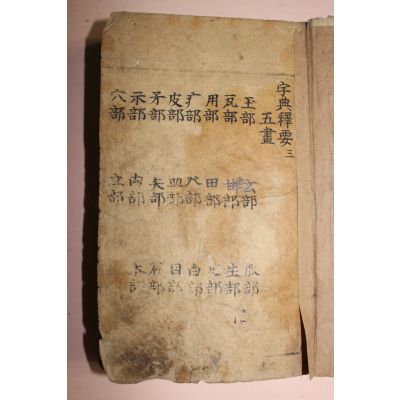 字典釋要三
五畫
玉部 玄部 瓜部
瓦部 甘部 生部
用部 田部 疋部
疒部 癶部 白部
皮部 皿部 目部
矛部 矢部 石部
示部 禸部 禾部
穴部 立部